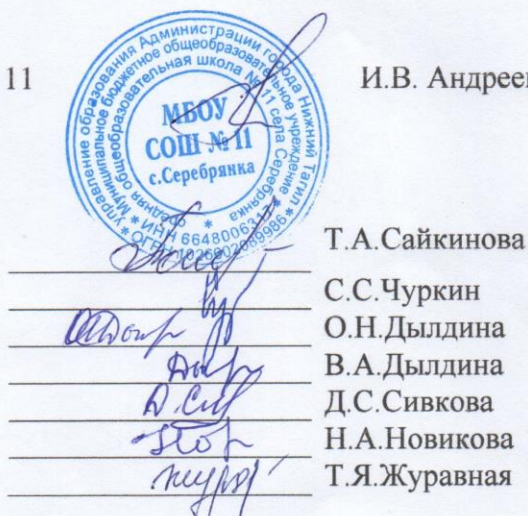 11 И.В. Андреев
Управление образования Администрации города Нижний Тагил
Муниципальное бюджетное общеобразовательное учреждение
средняя общеобразовательная школа № 11 села Серебрянка
МБОУ
СОШ № 11
с.Серебрянка
Т.А.Сайкинова
С.С.Чуркин
О.Н.Дылдина
В.А.Дылдина
Д.С.Сивкова
Н.А.Новикова
Т.Я.Журавная